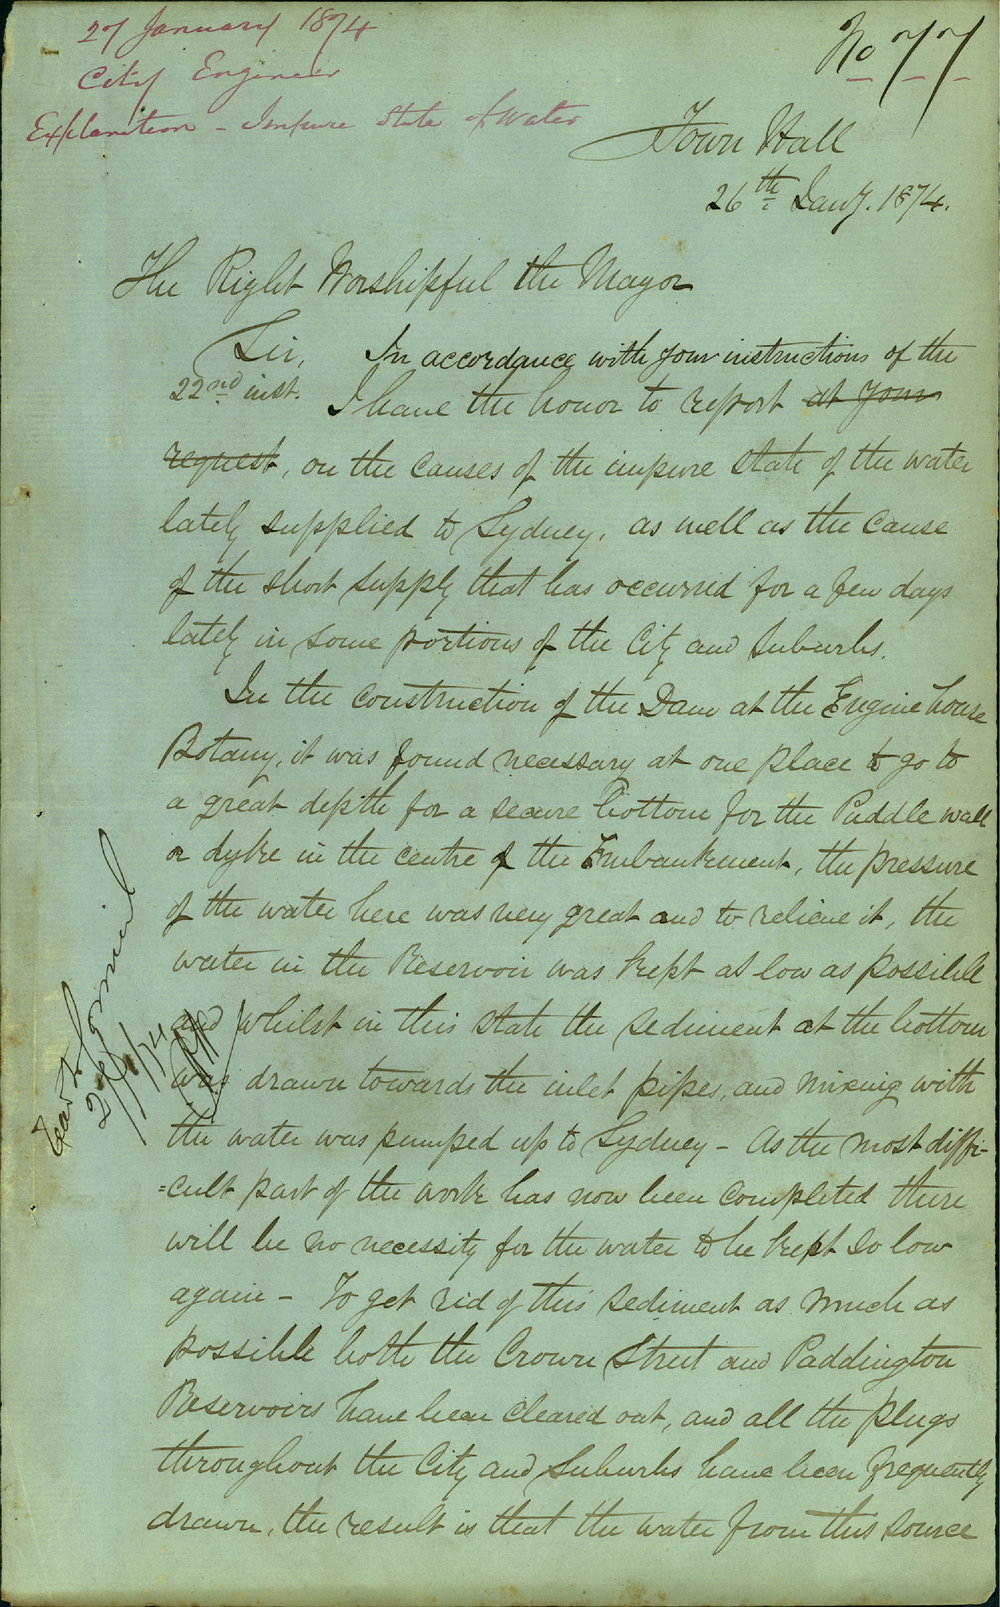 27 January 1874
City Engineer
Explanation - Impure State of Water
No 77
Town Hall
26th Jany. 1874.
The Right Worshipful the Mayor
Sir, In accordance with your instructions of the
22nd inst. I have the honor to report at your
request, on the causes of the impure state of the water
lately supplied to Sydney, as well as the cause
of the short supply that has occurred for a few days
lately in some portions of the City and Suburbs.
In the construction of the Dam at the Engine house
Botany, it was found necessary at one place to go to
a great depth for a secure bottom for the Puddle wall
or dyke in the centre of the Embankment, the pressure
of the water here was very great and to relieve it, the
water in the Reservoir was kept as low as possible
and whilst in this state the sediment at the bottom
was drawn towards the inlet pipes, and mixing with
the water was pumped up to Sydney - As the most diffi-
=cult part of the work has now been completed there
will be no necessity for the water to be kept so low
again - To get rid of this sediment as much as
possible both the Crown Street and Paddington
Reservoirs have been cleared out, and all the plugs
throughout the City and Suburbs have been frequently
drawn, the result is that the water from this source
27/1/74